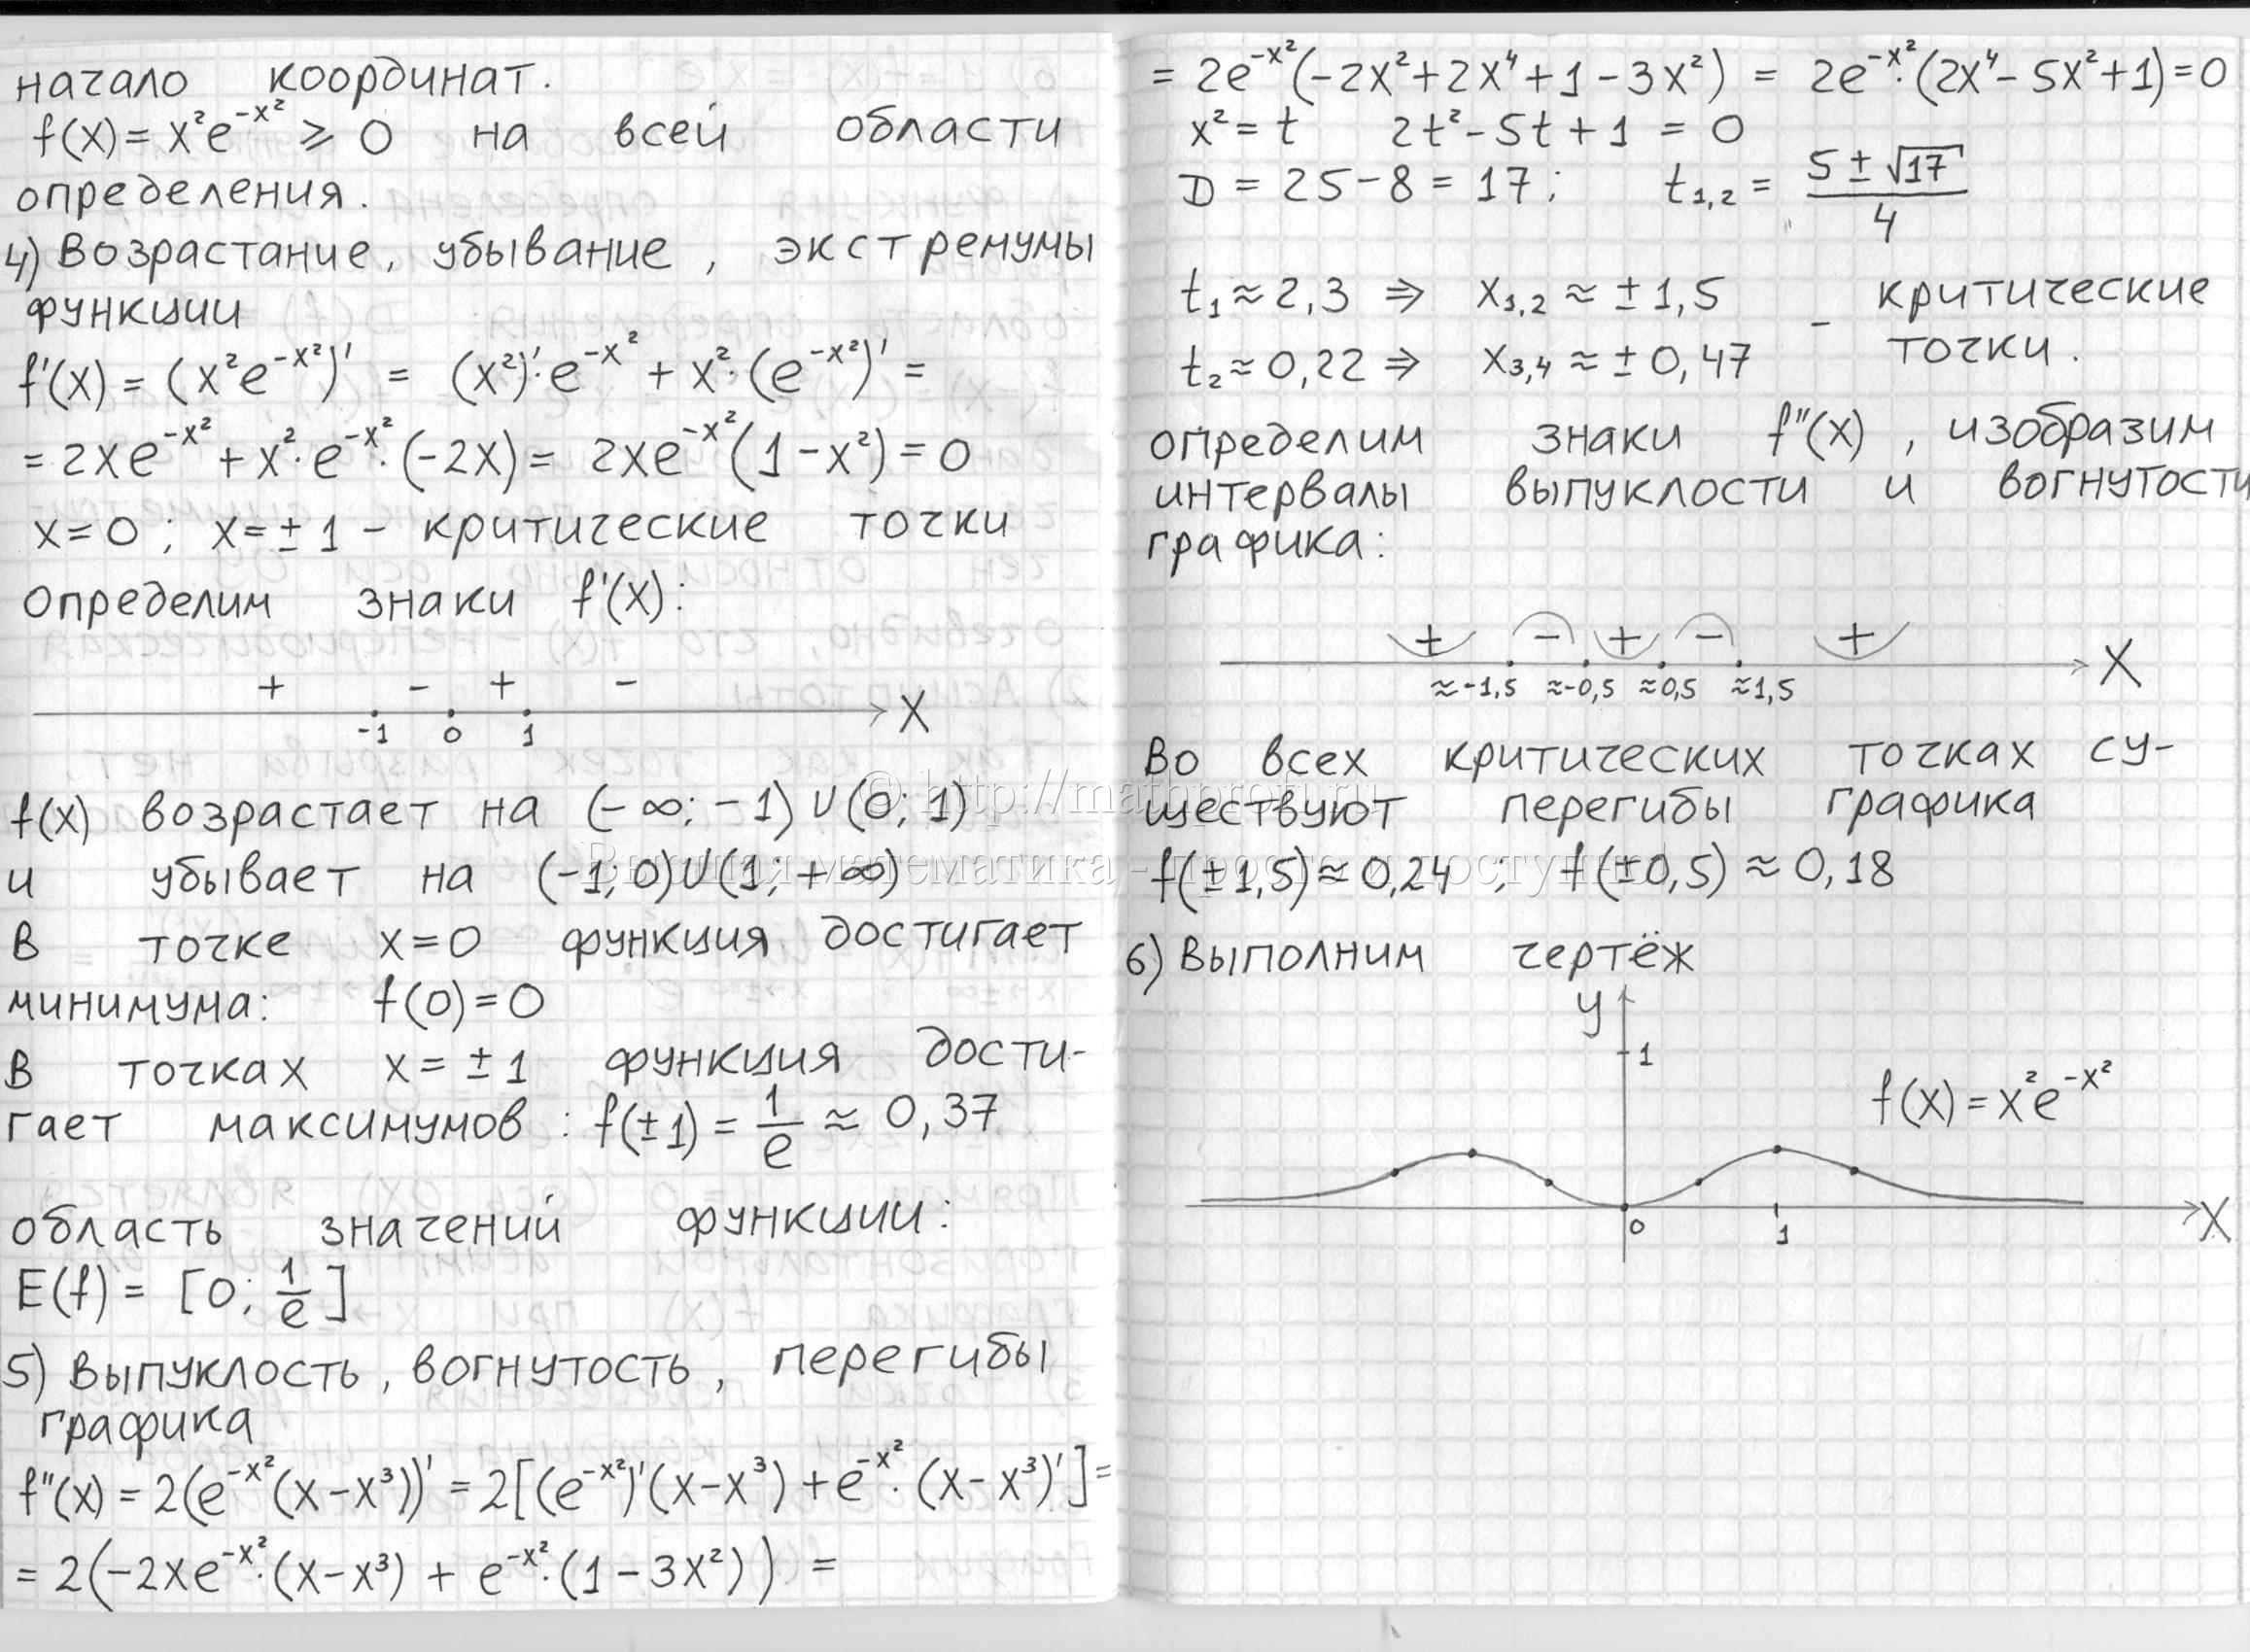 начало координат.
f(x) = x²e^{-x²} ⩾ 0 на всей области
определения.
4) Возрастание, убывание, экстремумы
функции
f'(x) = (x²e^{-x²})' = (x²)'·e^{-x²} + x²·(e^{-x²})' =
= 2xe^{-x²} + x²·e^{-x²}·(-2x) = 2xe^{-x²}(1-x²) = 0
x=0; x=±1 - критические точки
определим знаки f'(x):
+ - + -
-1 0 1 X
f(x) возрастает на (-∞; -1) ∪ (0; 1)
и убывает на (-1; 0) ∪ (1; +∞)
В точке x=0 функция достигает
минимума: f(0)=0
В точках x=±1 функция дости-
гает максимумов: f(±1) = 1/e ≈ 0,37
область значений функции:
E(f) = [0; 1/e]
5) Выпуклость, вогнутость, перегибы
графика
f''(x) = 2(e^{-x²}(x-x³))' = 2[(e^{-x²})'(x-x³) + e^{-x²}·(x-x³)'] =
= 2(-2xe^{-x²}·(x-x³) + e^{-x²}·(1-3x²)) =
= 2e^{-x²}(-2x²+2x⁴+1-3x²) = 2e^{-x²}·(2x⁴-5x²+1)=0
x² = t 2t²-5t+1 = 0
D = 25-8 = 17; t₁,₂ = (5±√17)/4
t₁≈2,3 ⇒ x₁,₂ ≈ ±1,5 - критические
t₂≈0,22 ⇒ x₃,₄ ≈ ±0,47 точки.
определим знаки f''(x), изобразим
интервалы выпуклости и вогнутости
графика:
+ - + - +
≈-1,5 ≈-0,5 ≈0,5 ≈1,5 X
Во всех критических точках су-
ществуют перегибы графика
f(±1,5)≈0,24; f(±0,5)≈0,18
6) Выполним чертёж
y
1
f(x) = x²e^{-x²}
0 1 X
© http://mathprofi.ru
Высшая математика - просто и доступно!